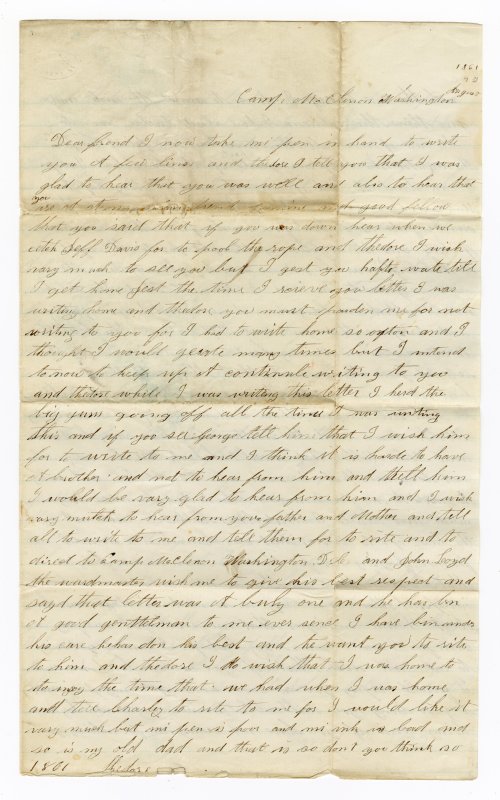 1861
Aug
Camp McClenon Washington
Dear frend I now take mi pen in hand to write
you A few lines and thedore I tell you that I was
glad to hear that you was well and also to hear that
you
are at frend of mine and good fellow
that you said that if you was down hear when we
catch Jeff Davis for to pool the rope and thedore I wish
vary much to see you but I gest you hafto waite till
I get home Jest the time I reieve you letter I was
writing home and thedore you must pardon me for not
writing to you for I had to write home so ofton and I
thought I would many times but I intend
to now to keep up at continule writing to you
and thedore while I was writing this letter I herd the
big guns going off all the time I was writing
this and if you see George tell him that I wish him
for to write to me and I think it is harde to have
A brother and not to hear from him and thell him
I would be vary glad to hear from him and I wish
vary mutch to hear from your father and Mother and tell
all to write to me and tell them for to rite and to
direct to Camp McClenon Washington D.C. and John Loyd
the wardmaster wish me to give his best respect and
sayd that letter was A buly one and he has bin
A good gentleman to me ever sence I have bin under
his care he has don his best and he want you to rite
to him and thedore I do wish that I was home to
the time that we had when I was home
and tell Charley to rite to me for I would like it
vary much but mi pen is poor and mi ink is bad and
so is my old dad and that is so dont you think so
1861 thedore